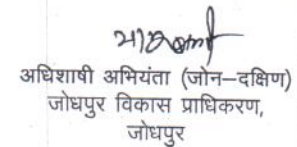 अधिशाषी अभियंता (जोन–दक्षिण)
जोधपुर विकास प्राधिकरण,
जोधपुर